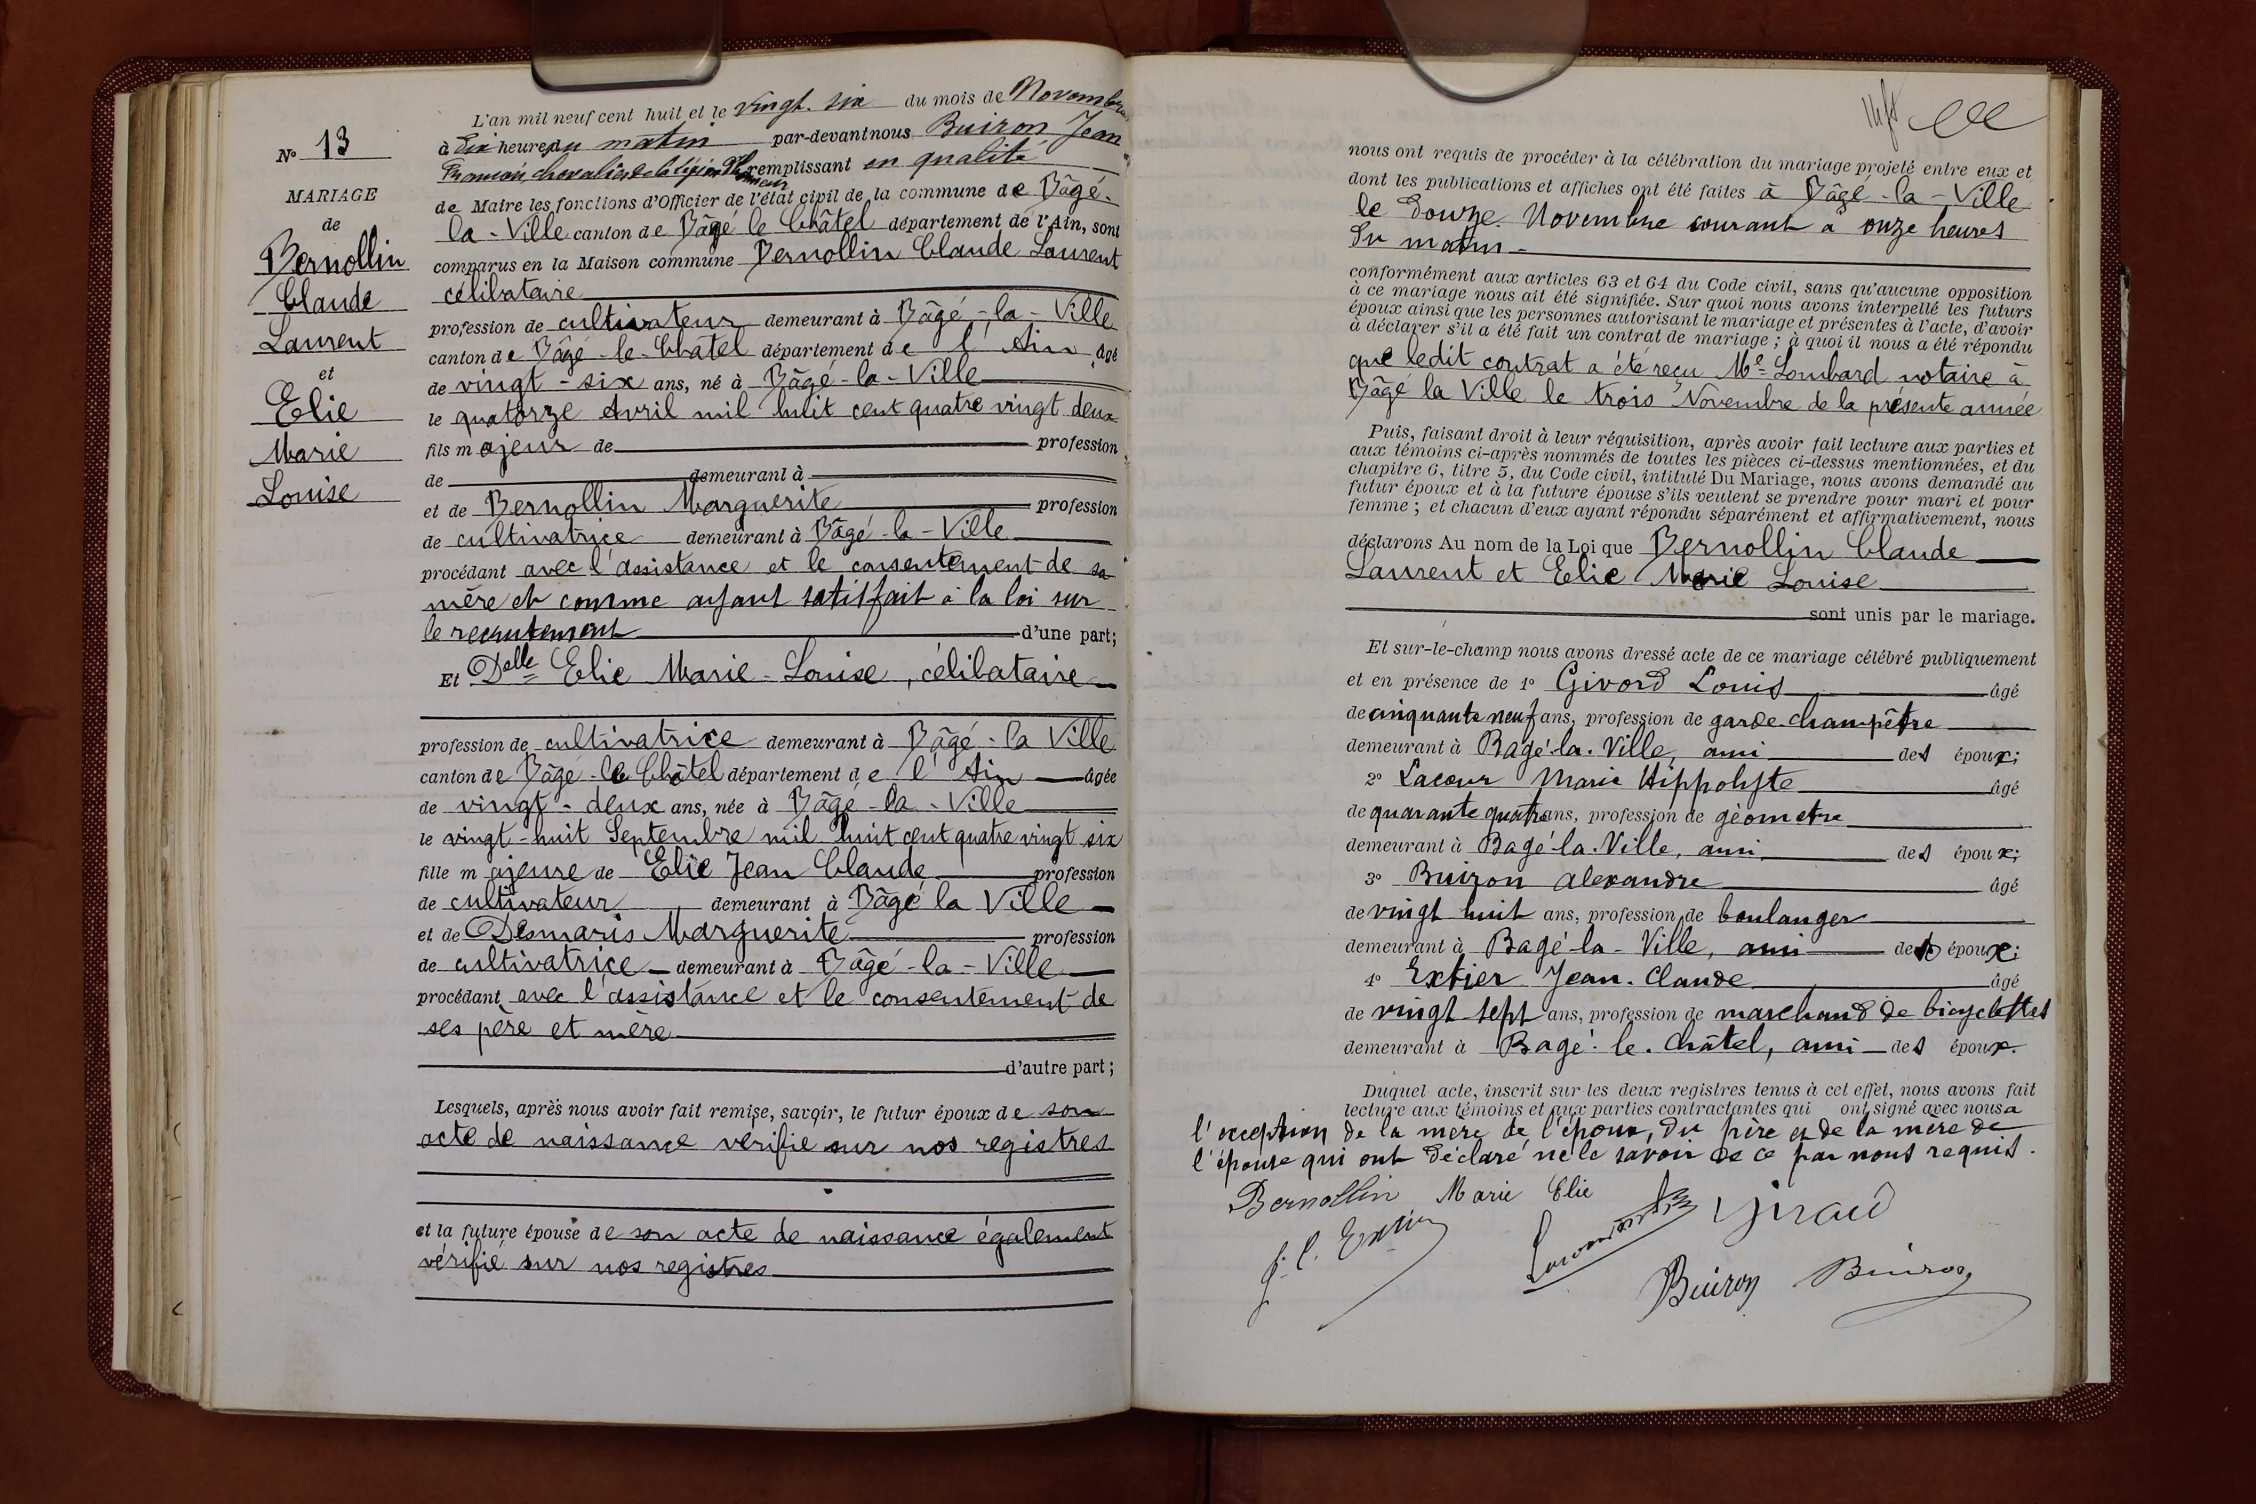 L'an mil neuf cent huit et le vingt-six du mois de Novembre
N° 13
à dix heures du matin par-devant nous Buiron Jean
chevalier de la légion remplissant en qualité
MARIAGE
de Maire les fonctions d'Officier de l'état civil de la commune de Bâgé-
de
la-Ville canton de Bâgé le Châtel département de l'Ain, sont
Bernollin
comparus en la Maison commune Bernollin Claude Laurent
Claude
célibataire
Laurent
profession de cultivateur demeurant à Bâgé-la-Ville
et
canton de Bâgé-le-Châtel département de l'Ain âgé
Elie
de vingt-six ans, né à Bâgé-la-Ville
Marie
le quatorze Avril mil huit cent quatre vingt deux
Louise
fils majeur de profession
de demeurant à
et de Bernollin Marguerite profession
de cultivatrice demeurant à Bâgé-la-Ville
procédant avec l'assistance et le consentement de sa
mère et comme ayant satisfait à la loi sur
le recrutement d'une part;
Et Delle Elie Marie-Louise, célibataire
profession de cultivatrice demeurant à Bâgé-la Ville
canton de Bâgé-le Châtel département de l'Ain âgée
de vingt-deux ans, née à Bâgé-la-Ville
le vingt-huit Septembre mil huit cent quatre vingt six
fille majeure de Elie Jean Claude profession
de cultivateur demeurant à Bâgé la Ville
et de Desmaris Marguerite profession
de cultivatrice demeurant à Bâgé-la-Ville
procédant avec l'assistance et le consentement de
ses père et mère
d'autre part;
Lesquels, après nous avoir fait remise, savoir, le futur époux de son
acte de naissance vérifié sur nos registres
et la future épouse de son acte de naissance également
vérifié sur nos registres
nous ont requis de procéder à la célébration du mariage projeté entre eux et
dont les publications et affiches ont été faites à Bâgé-la-Ville
le douze Novembre courant à onze heures
du matin
conformément aux articles 63 et 64 du Code civil, sans qu'aucune opposition
à ce mariage nous ait été signifiée. Sur quoi nous avons interpellé les futurs
époux ainsi que les personnes autorisant le mariage et présentes à l'acte, d'avoir
à déclarer s'il a été fait un contrat de mariage; à quoi il nous a été répondu
que ledit contrat a été reçu Me Lombard notaire à
Bâgé la Ville le trois Novembre de la présente année
Puis, faisant droit à leur réquisition, après avoir fait lecture aux parties et
aux témoins ci-après nommés de toutes les pièces ci-dessus mentionnées, et du
chapitre 6, titre 5, du Code civil, intitulé Du Mariage, nous avons demandé au
futur époux et à la future épouse s'ils veulent se prendre pour mari et pour
femme; et chacun d'eux ayant répondu séparément et affirmativement, nous
déclarons Au nom de la Loi que Bernollin Claude
Laurent et Elie Marie Louise
sont unis par le mariage.
Et sur-le-champ nous avons dressé acte de ce mariage célébré publiquement
et en présence de 1° Givord Louis âgé
de cinquante neuf ans, profession de garde-champêtre
demeurant à Bagé-la-Ville ami des époux;
2° Lacour Marie Hippolyte âgé
de quarante quatre ans, profession de géomètre
demeurant à Bagé-la-Ville, ami des époux;
3° Buiron Alexandre âgé
de vingt huit ans, profession de boulanger
demeurant à Bagé-la-Ville, ami des époux;
4° Extier Jean-Claude âgé
de vingt sept ans, profession de marchand de bicyclettes
demeurant à Bagé-le-Châtel, ami des époux.
Duquel acte, inscrit sur les deux registres tenus à cet effet, nous avons fait
lecture aux témoins et aux parties contractantes qui ont signé avec nous a
l'exception de la mère de l'époux, du père et de la mère de
l'épouse qui ont déclaré ne le savoir de ce par nous requis.
Bernollin Marie Elie
J. C. Extier
Buiron Buiron